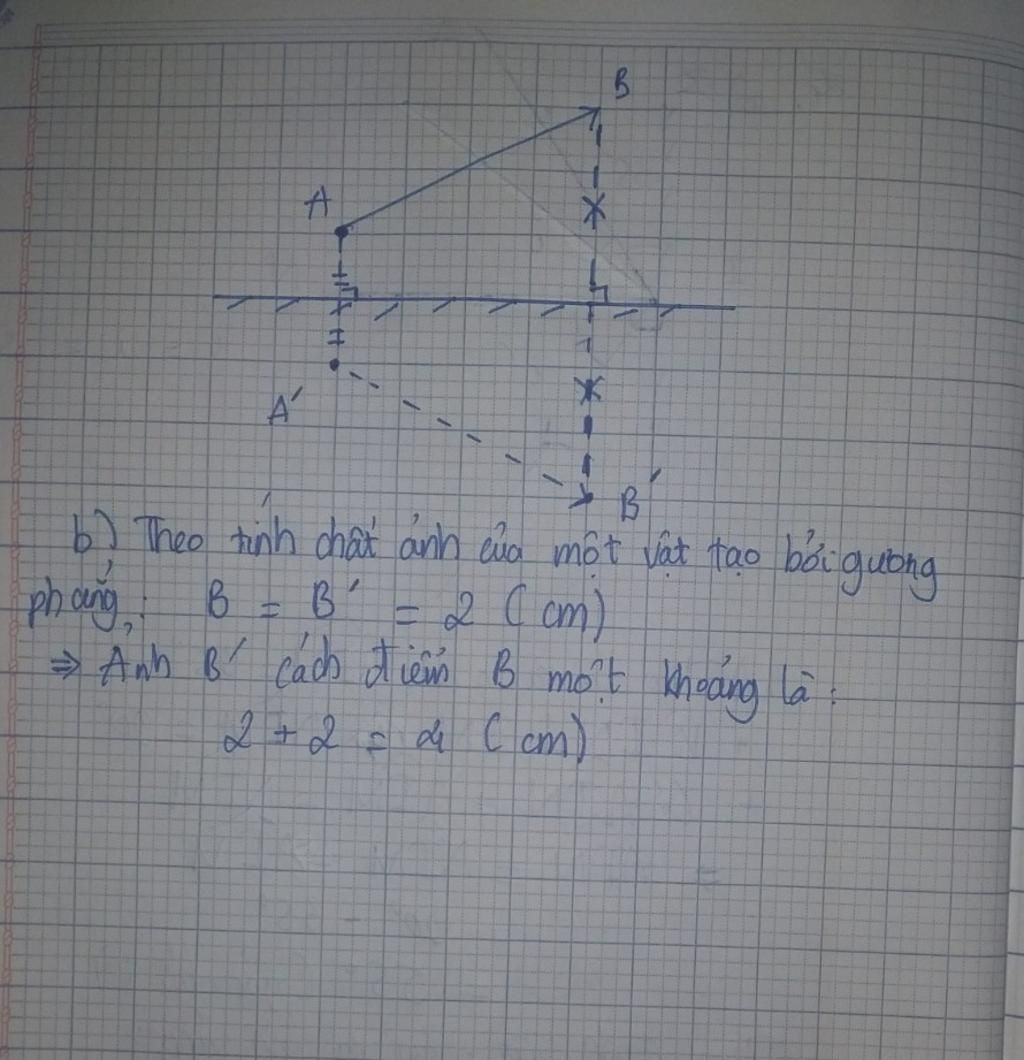 B
A
A'
B'
b) Theo tính chất ảnh của một vật tạo bởi gương
phẳng: B = B' = 2 (cm)
⇒ Ảnh B' cách điểm B một khoảng là:
2 + 2 = 4 (cm)